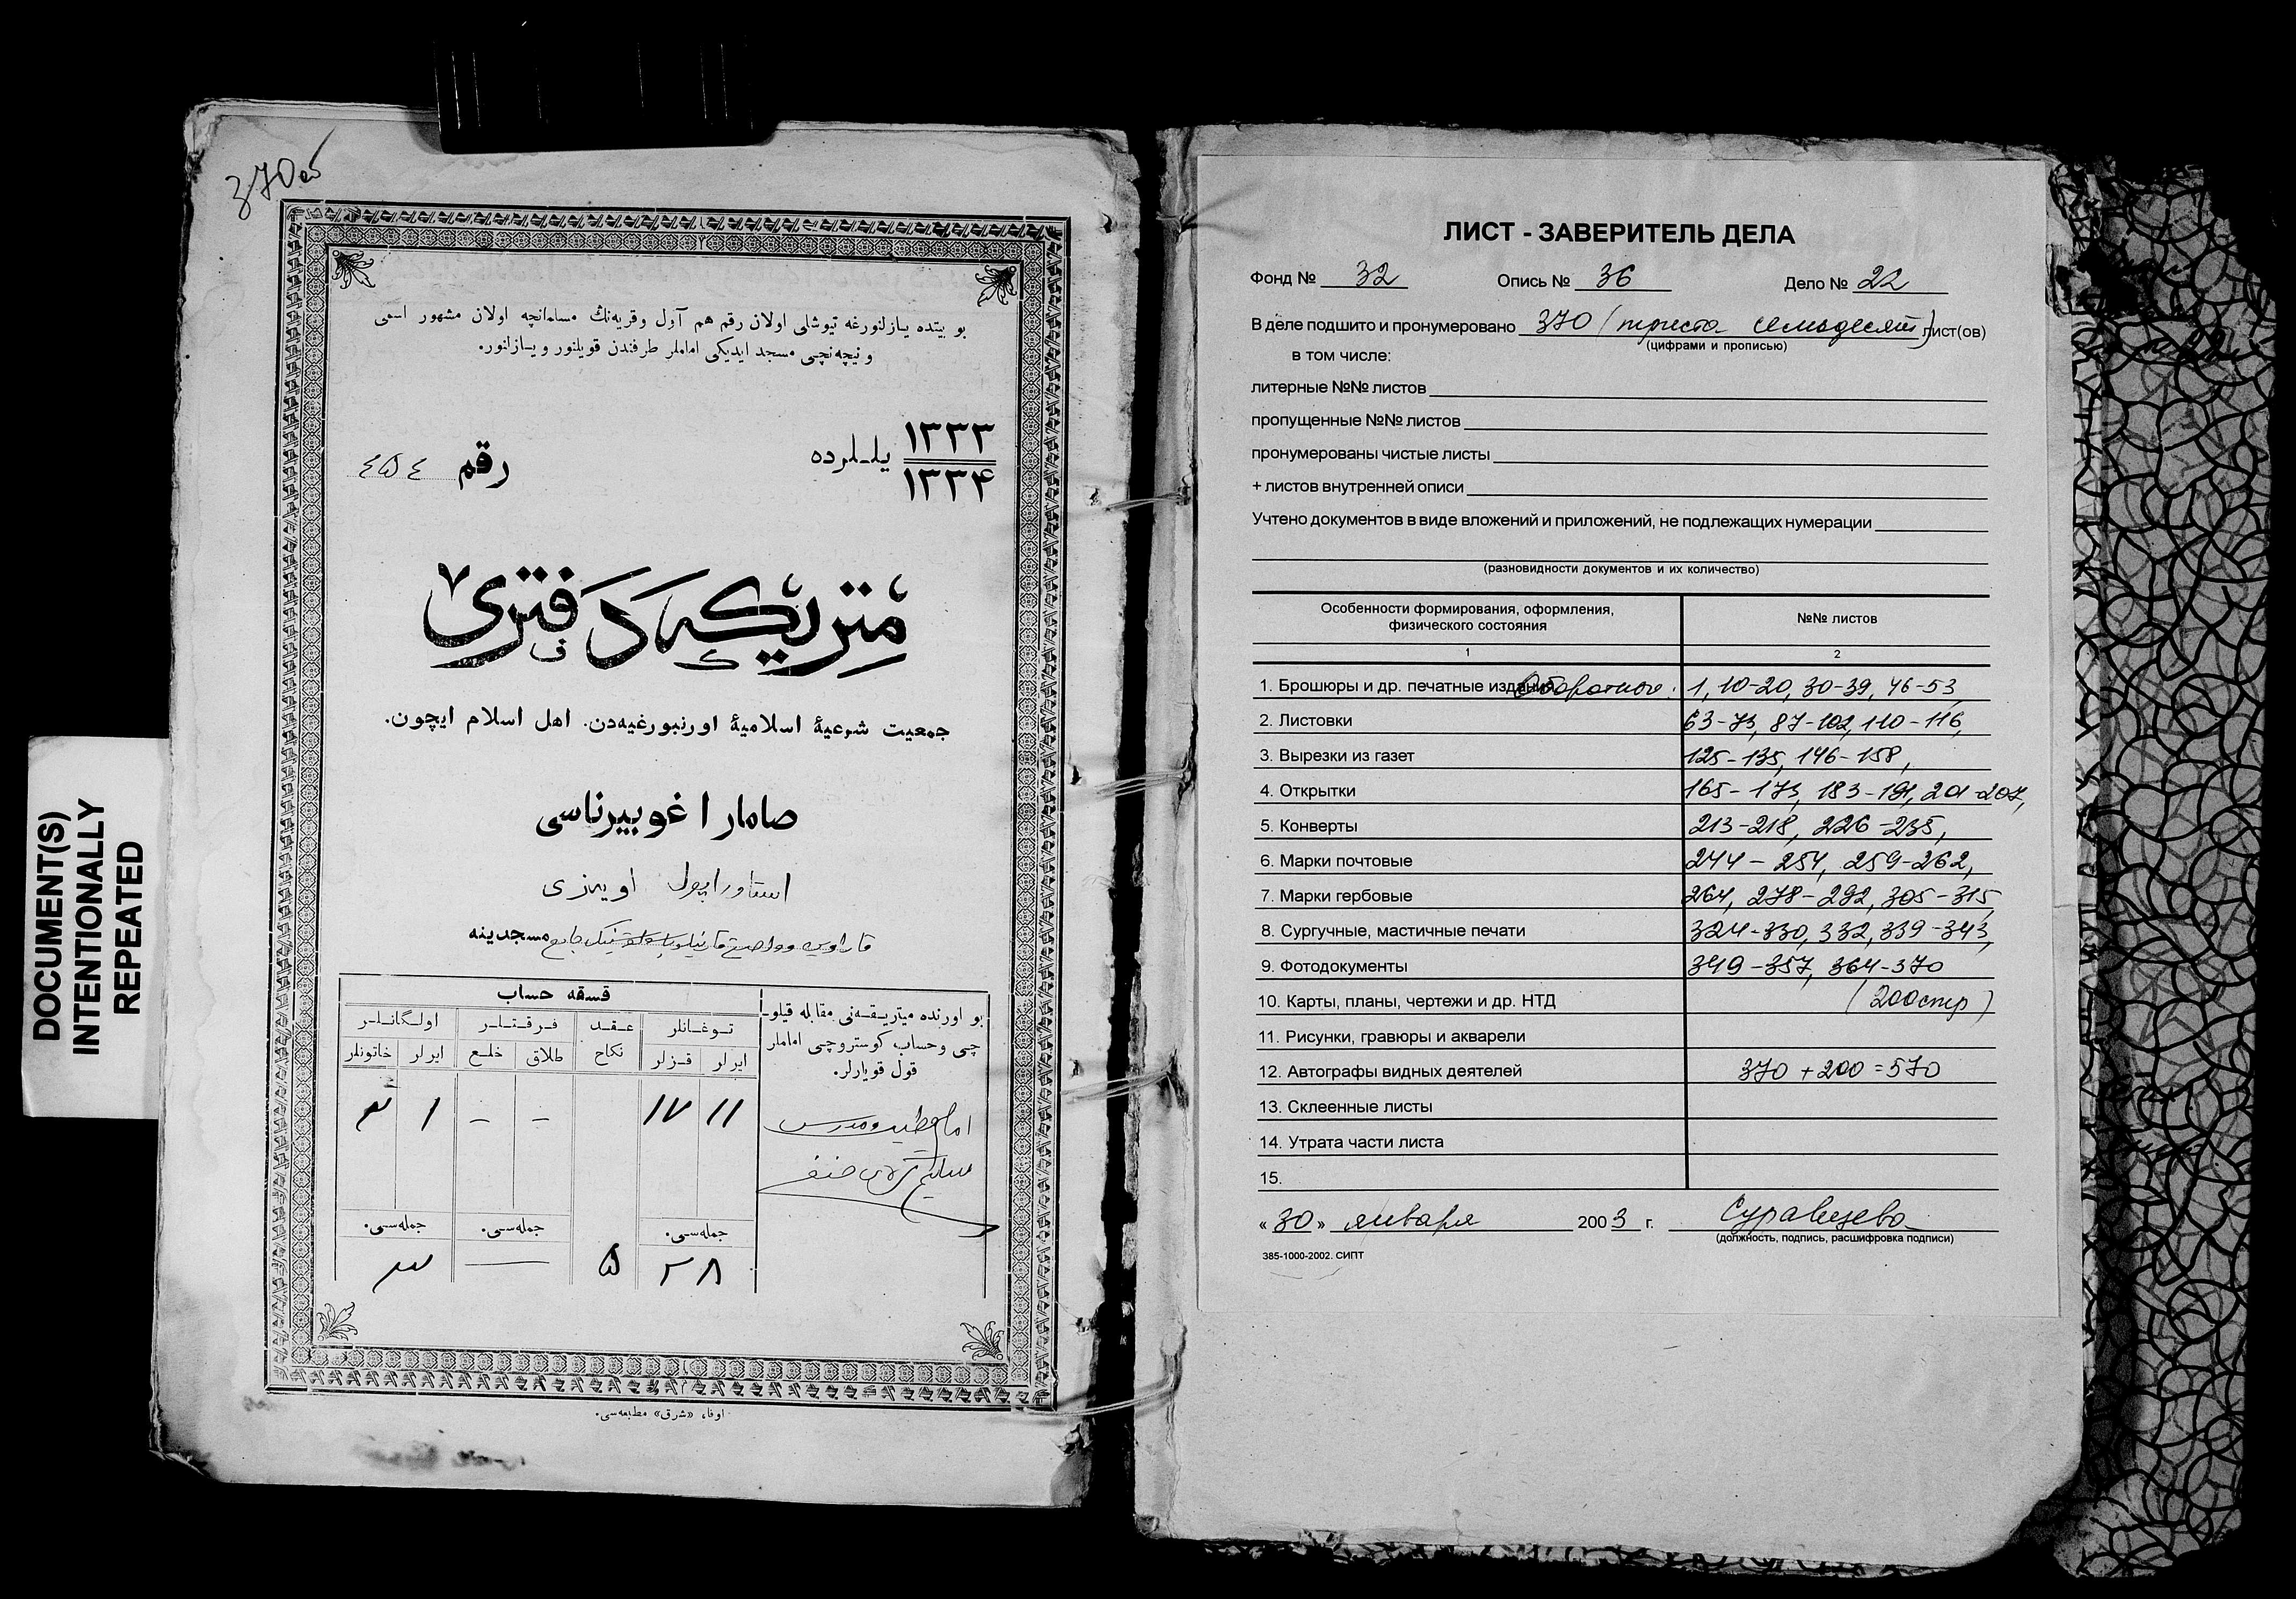 DOCUMENT(S)
INTENTIONALLY
REPEATED
370об
بو بيتده يازلنورغه تيوشلى اولان رقم هم آول وقريه‌نڭ مسلمانچه اولان مشهور اسمى
و نيچه‌نچى مسجد ايديكى اماملر طرفندن قويلنور و يازلنور.
۱۳۳۳
۱۳۳۴
يللرده
رقم ٤٥٤
متريكه دفترى
جمعيت شرعيۀ اسلاميۀ اورنبورغيه‌دن. اهل اسلام ايچون.
صامارا غوبيرناسى
استاوراپول اويه‌زى
جامع مسجدينه
قسقه حساب
بو اورنده ميتريقه‌نى مقابله قيلو
چى وحساب كوستروچى اماملر
قول قويارلر.
توغانلر
عقد
فرقتلر
اولگانلر
ايرلر
قزلر
نكاح
طلاق
خلع
ايرلر
خاتونلر
۱۱
۱۷
–
–
۱
۲
امام خطيب ومدرس
جمله‌سى.
جمله‌سى.
جمله‌سى.
۲۸
۵
—
۳
اوفا، «شرق» مطبعه‌سى.
ЛИСТ - ЗАВЕРИТЕЛЬ ДЕЛА
Фонд № 32 Опись № 36 Дело № 22
В деле подшито и пронумеровано 370 (триста семьдесят) лист(ов)
(цифрами и прописью)
в том числе:
литерные №№ листов
пропущенные №№ листов
пронумерованы чистые листы
+ листов внутренней описи
Учтено документов в виде вложений и приложений, не подлежащих нумерации
(разновидности документов и их количество)
Особенности формирования, оформления,
физического состояния
№№ листов
1
2
1. Брошюры и др. печатные издания Оборотные: 1, 10-20, 30-39, 46-53,
2. Листовки 63-73, 87-102, 110-116,
3. Вырезки из газет 125-135, 146-158,
4. Открытки 165-173, 183-191, 201-207,
5. Конверты 213-218, 226-235,
6. Марки почтовые 244-254, 259-262,
7. Марки гербовые 264, 278-292, 305-315,
8. Сургучные, мастичные печати 324-330, 332, 339-343,
9. Фотодокументы 349-357, 364-370
10. Карты, планы, чертежи и др. НТД (200стр)
11. Рисунки, гравюры и акварели
12. Автографы видных деятелей 370+200=570
13. Склеенные листы
14. Утрата части листа
15.
«30» января 2003 г. Суравцева
(должность, подпись, расшифровка подписи)
385-1000-2002. СИПТ